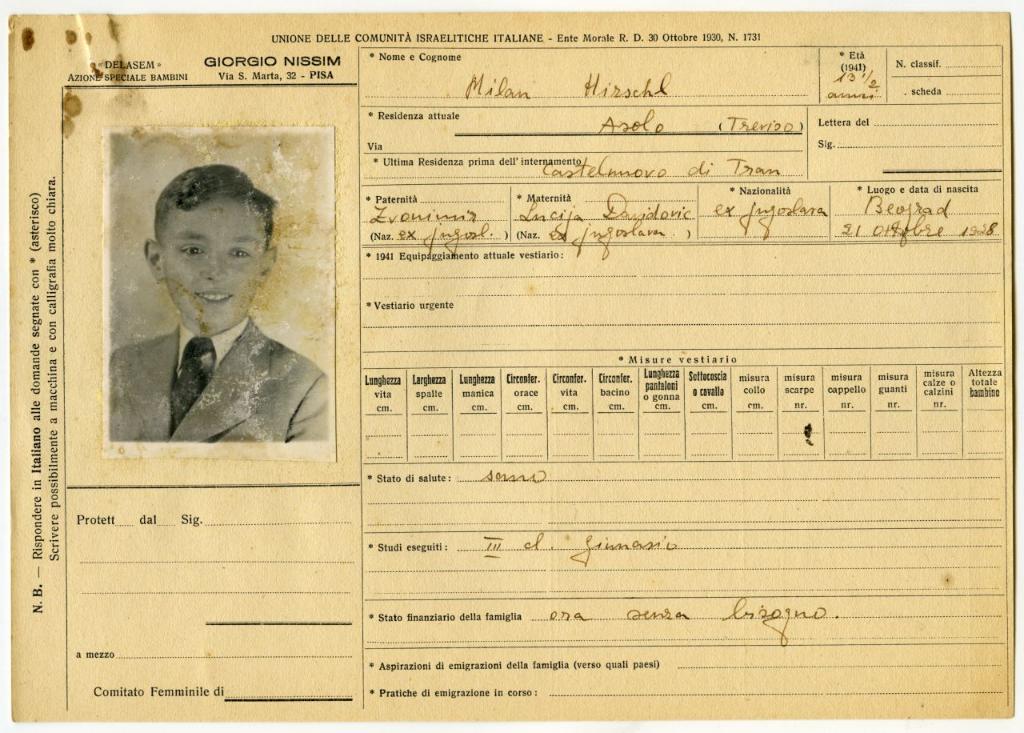 UNIONE DELLE COMUNITÀ ISRAELITICHE ITALIANE - Ente Morale R. D. 30 Ottobre 1930, N. 1731
« DELASEM »
AZIONE SPECIALE BAMBINI
GIORGIO NISSIM
Via S. Marta, 32 - PISA
N. B. — Rispondere in Italiano alle domande segnate con * (asterisco)
Scrivere possibilmente a macchina e con calligrafia molto chiara.
Protett dal Sig.
a mezzo
Comitato Femminile di
* Nome e Cognome
Milan Hirschl
* Età
(1941)
13 1/2
anni
N. classif.
. scheda
* Residenza attuale
Asolo (Treviso)
Via
Lettera del
Sig.
* Ultima Residenza prima dell'internamento
Castelnuovo di Tran
* Paternità
Zvonimir
(Naz. ex jugosl. )
* Maternità
Lucija Davidovic
(Naz. ex jugoslava )
* Nazionalità
ex jugoslava
* Luogo e data di nascita
Beograd
21 Ottobre 1928
* 1941 Equipaggiamento attuale vestiario:
* Vestiario urgente
* Misure vestiario
Lunghezza vita cm.
Larghezza spalle cm.
Lunghezza manica cm.
Circonfer. orace cm.
Circonfer. vita cm.
Circonfer. bacino cm.
Lunghezza pantaloni o gonna cm.
Sottocoscia o cavallo cm.
misura collo cm.
misura scarpe nr.
misura cappello nr.
misura guanti nr.
misura calze o calzini nr.
Altezza totale bambino
* Stato di salute: sano
* Studi eseguiti: III cl. gimnasio
* Stato finanziario della famiglia ora senza bisogno.
* Aspirazioni di emigrazioni della famiglia (verso quali paesi)
* Pratiche di emigrazione in corso: